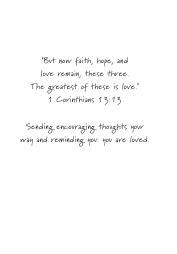 "But now faith, hope, and
love remain, these three.
The greatest of these is love."
1 Corinthians 13:13
Sending encouraging thoughts your
way and reminding you: you are loved.